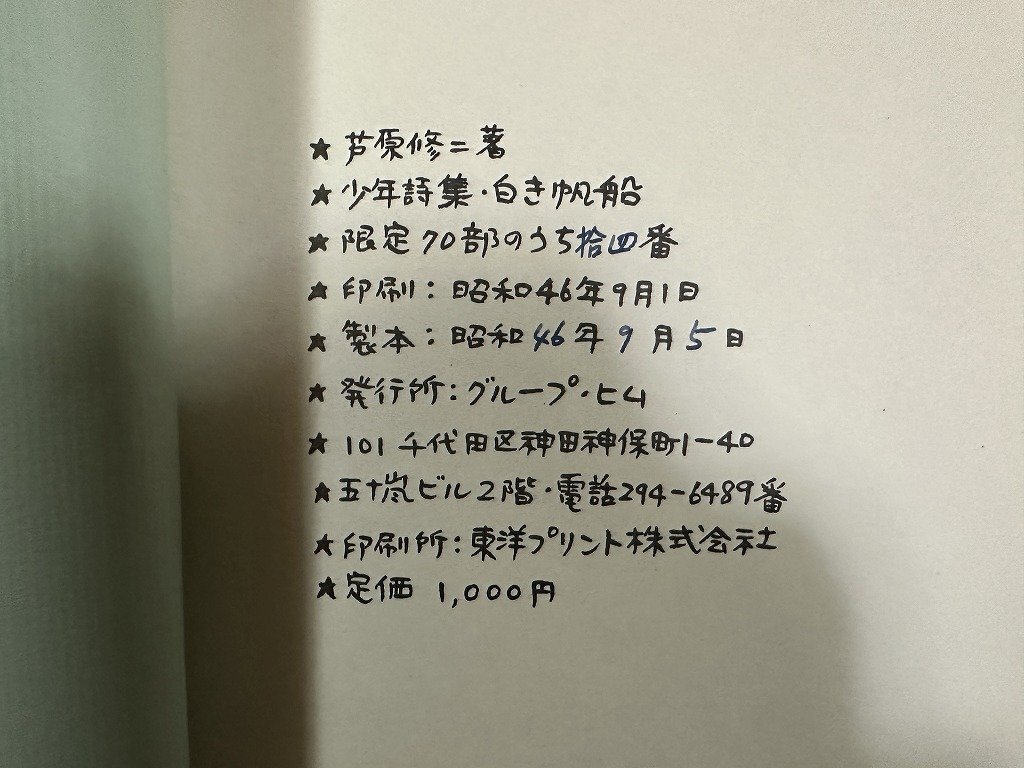 ★芦原修二著
★少年詩集・白き帆船
★限定70部のうち拾四番
★印刷：昭和46年9月1日
★製本：昭和46年9月5日
★発行所：グループ・ヒム
★101千代田区神田神保町1-40
★五十嵐ビル2階・電話294-6489番
★印刷所：東洋プリント株式会社
★定価 1,000円